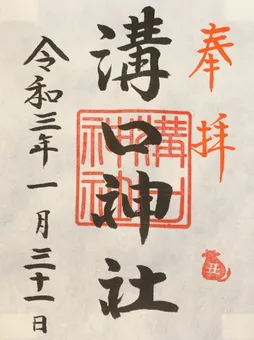 奉拝
溝口神社
溝口神社
丑
令和三年一月三十一日